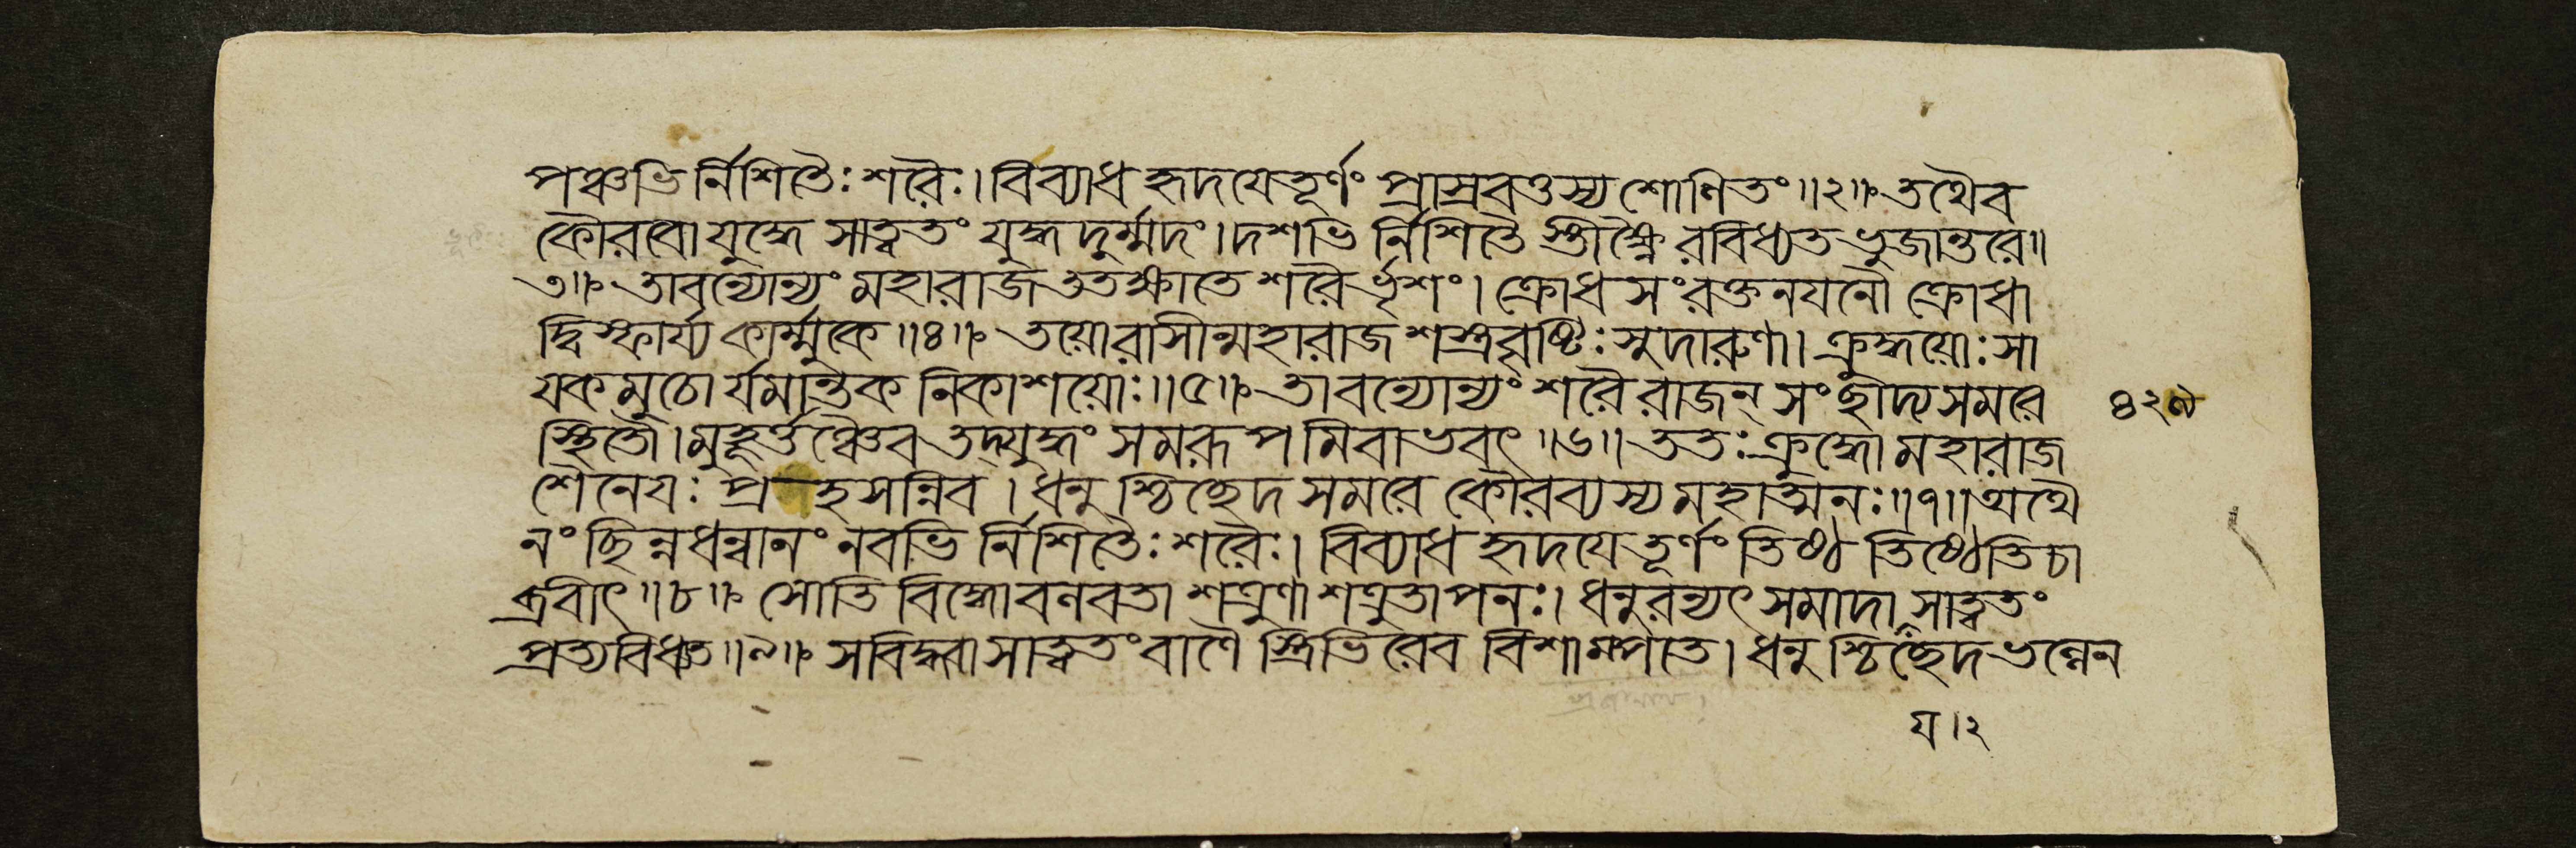 পঞ্চভির্নিশিতৈঃ শরৈঃ। বিব্যাধ হৃদযেতূর্ণং প্রাস্রবত্তস্য শোণিতং॥২॥ তথৈব
কৌরবো যুদ্ধে সাত্বতং যুদ্ধদুর্ম্মদং। দশভি র্নিশিতৈ স্তীক্ষ্ণৈ রবিধ্যত ভুজান্তরে॥
৩॥ তাবন্যোন্যং মহারাজ ততক্ষাতে শরৈর্ভৃশং। ক্রোধ সংরক্তনযনৌ ক্রোধা
দ্বিস্ফার্য্য কার্ম্মুকে॥৪॥ তয়োরাসীন্মহারাজ শস্ত্রবৃষ্টিঃ সুদারুণা। ক্রুদ্ধয়োঃ সা
যকমুচো র্যমান্তক নিকাশয়োঃ॥৫॥ তাবন্যোন্যং শরৈ রাজন্ সংছাদ্য সমরে
স্থিতৌ। মুহূর্ত্তঞ্চৈব তদ্যুদ্ধং সমরূপমিবাভবৎ॥৬॥ ততঃ ক্রুদ্ধো মহারাজ
শৈনেযঃ প্রহসন্নিব। ধনু শ্চিচ্ছেদ সমরে কৌরব্যস্য মহাত্মনঃ॥৭॥ অথৈ
নং ছিন্নধন্বানং নবভি র্নিশিতৈঃ শরৈঃ। বিব্যাধ হৃদযে তূর্ণং তিষ্ঠ তিষ্ঠেতি চা
ব্রবীৎ॥৮॥ সোতি বিদ্ধোবলবতা শত্রুণা শত্রুতাপনঃ। ধনুরন্যৎ সমাদায় সাত্বতং
প্রত্যবিধ্যত॥৯॥ সবিদ্ধ্বা সাত্বতং বাণৈ স্ত্রিভিরেব বিশাম্পতে। ধনু শ্চিচ্ছেদ ভল্লেন
৪২৯
য।২